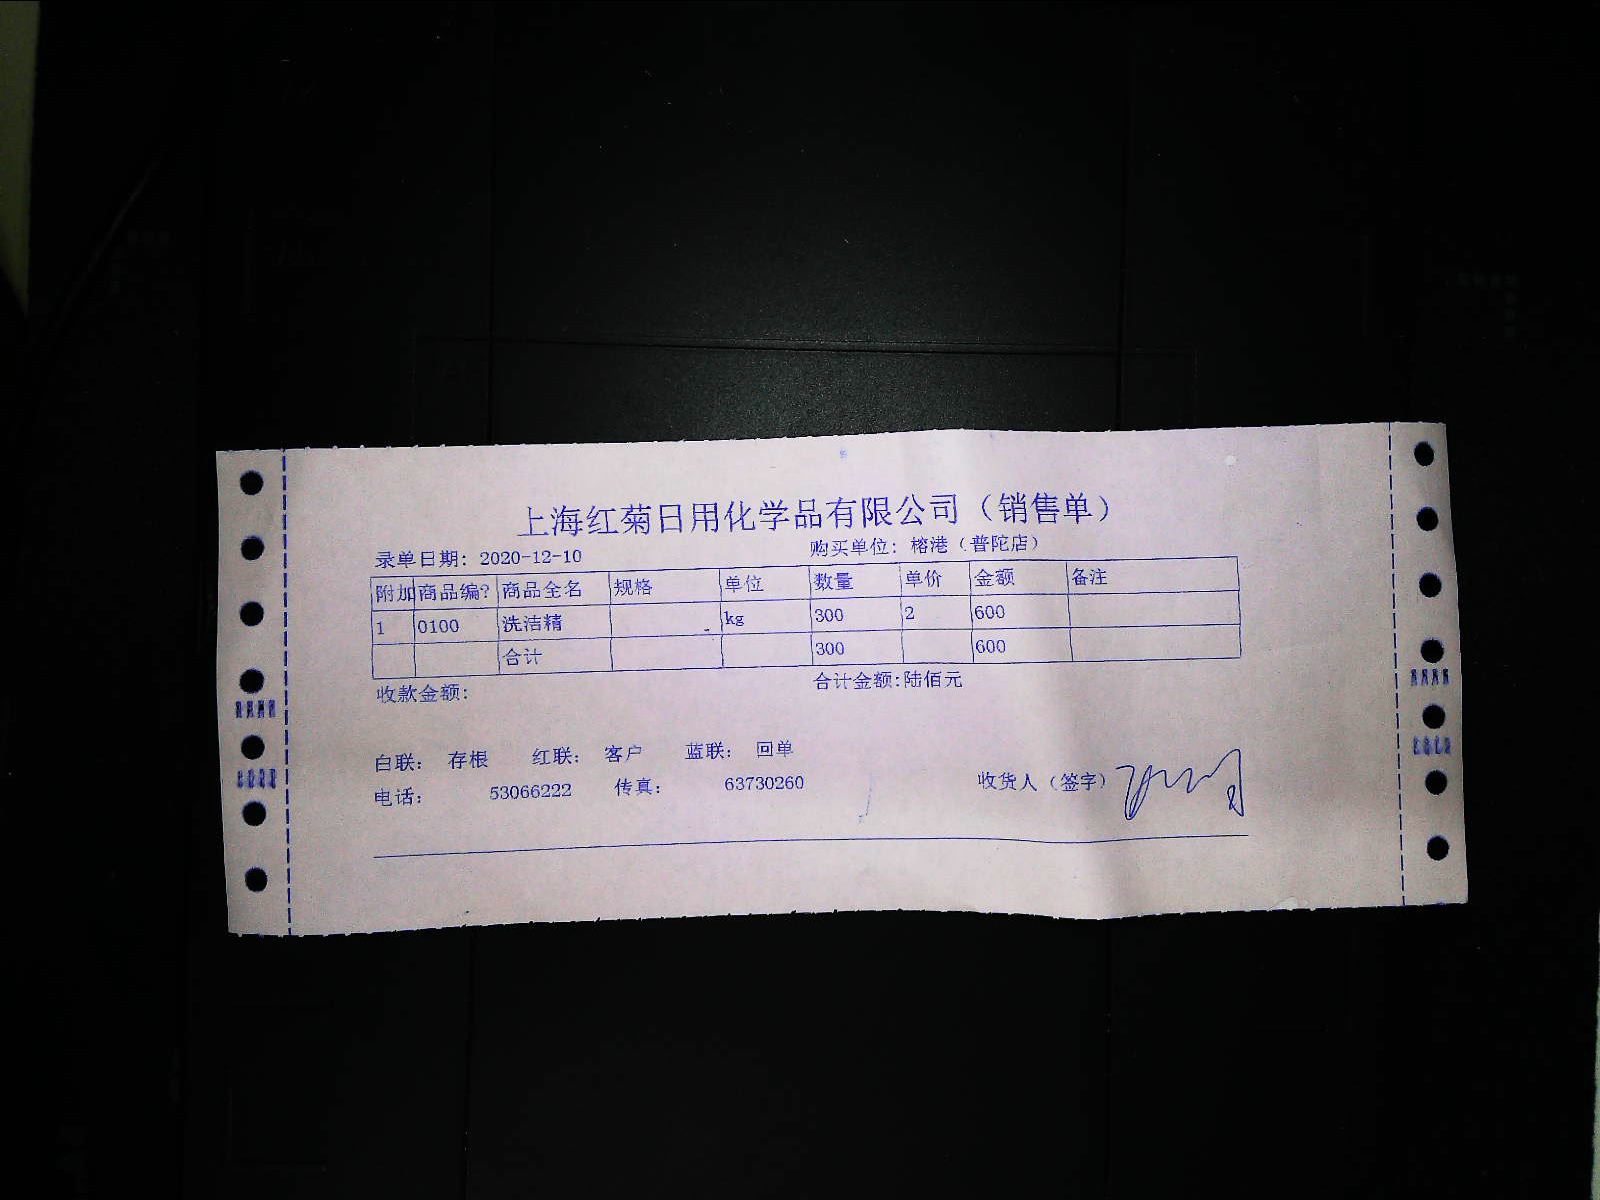 上海红菊日用化学品有限公司（销售单）
录单日期: 2020-12-10 购买单位: 榕港（普陀店）
附加 商品编? 商品全名 规格 单位 数量 单价 金额 备注
1 0100 洗洁精 kg 300 2 600
合计 300 600
收款金额: 合计金额:陆佰元
白联: 存根 红联: 客户 蓝联: 回单
电话: 53066222 传真: 63730260 收货人（签字）